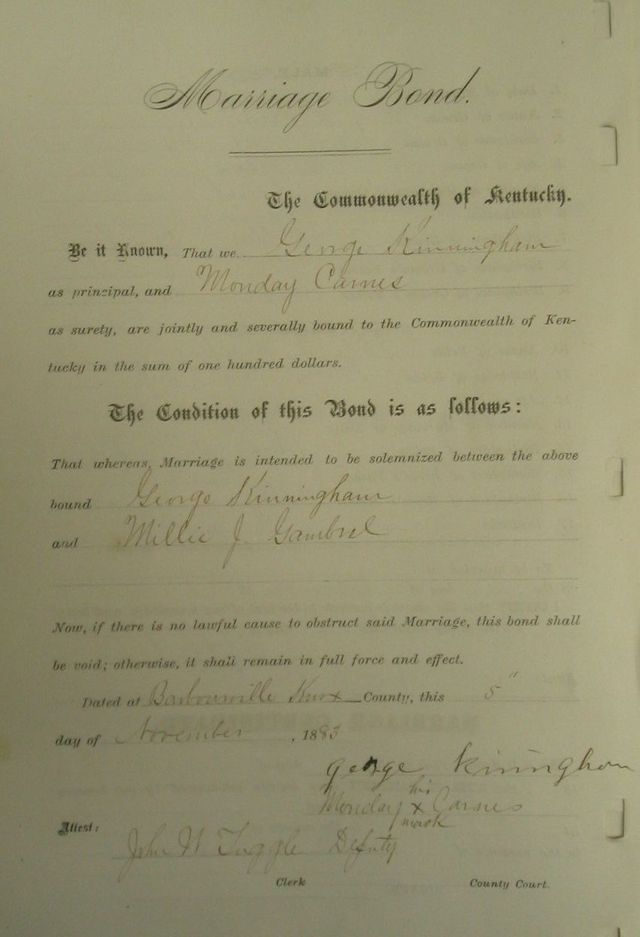 Marriage Bond.
The Commonwealth of Kentucky.
Be it Known, That we George Kinningham
as principal, and Monday Carnes
as surety, are jointly and severally bound to the Commonwealth of Ken-
tucky in the sum of one hundred dollars.
The Condition of this Bond is as follows:
That whereas, Marriage is intended to be solemnized between the above
bound George Kinningham
and Millie J Gambrel
Now, if there is no lawful cause to obstruct said Marriage, this bond shall
be void; otherwise, it shall remain in full force and effect.
Dated at Barbourville Knox County, this 5"
day of November, 1883
george Kiningham
his
Monday x Carnes
mark
Attest:
John W Tuggle Deputy
Clerk County Court.